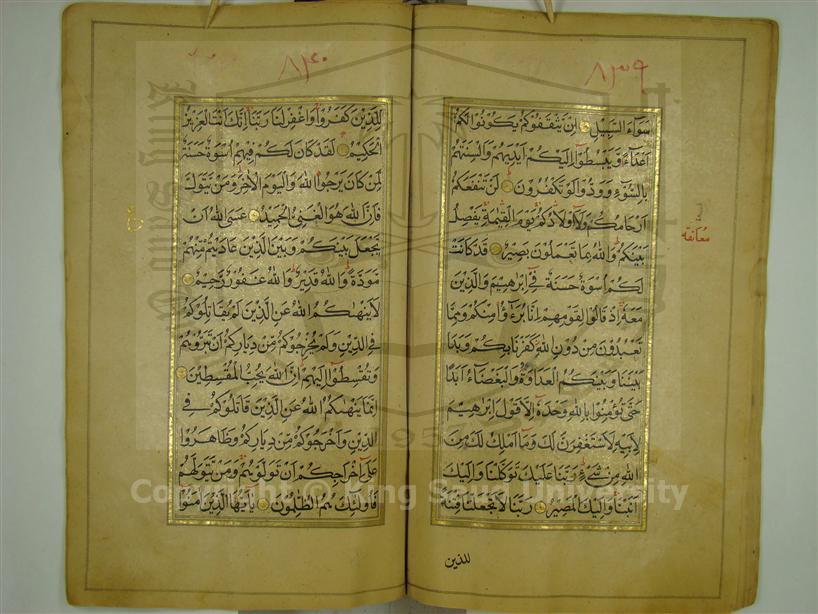 ٨٣٩
سَوَاءَ السَّبِيلِ إِنْ يَثْقَفُوكُمْ يَكُونُوا لَكُمْ
أَعْدَاءً وَيَبْسُطُوا إِلَيْكُمْ أَيْدِيَهُمْ وَأَلْسِنَتَهُمْ
بِالسُّوءِ وَوَدُّوا لَوْ تَكْفُرُونَ لَنْ تَنْفَعَكُمْ
أَرْحَامُكُمْ وَلَا أَوْلَادُكُمْ يَوْمَ الْقِيٰمَةِ يَفْصِلُ
بَيْنَكُمْ وَاللّٰهُ بِمَا تَعْمَلُونَ بَصِيرٌ قَدْ كَانَتْ
لَكُمْ أُسْوَةٌ حَسَنَةٌ فِي إِبْرٰهِيمَ وَالَّذِينَ
مَعَهُ إِذْ قَالُوا لِقَوْمِهِمْ إِنَّا بُرَءٰؤُا مِنْكُمْ وَمِمَّا
تَعْبُدُونَ مِنْ دُونِ اللّٰهِ كَفَرْنَا بِكُمْ وَبَدَا
بَيْنَنَا وَبَيْنَكُمُ الْعَدَاوَةُ وَالْبَغْضَاءُ أَبَدًا
حَتّٰى تُؤْمِنُوا بِاللّٰهِ وَحْدَهُ إِلَّا قَوْلَ إِبْرٰهِيمَ
لِأَبِيهِ لَأَسْتَغْفِرَنَّ لَكَ وَمَا أَمْلِكُ لَكَ مِنَ
اللّٰهِ مِنْ شَيْءٍ رَبَّنَا عَلَيْكَ تَوَكَّلْنَا وَإِلَيْكَ
أَنَبْنَا وَإِلَيْكَ الْمَصِيرُ رَبَّنَا لَا تَجْعَلْنَا فِتْنَةً
معانقه
للذين
٨٤٠
لِلَّذِينَ كَفَرُوا وَاغْفِرْ لَنَا رَبَّنَا إِنَّكَ أَنْتَ الْعَزِيزُ
الْحَكِيمُ لَقَدْ كَانَ لَكُمْ فِيهِمْ أُسْوَةٌ حَسَنَةٌ
لِمَنْ كَانَ يَرْجُوا اللّٰهَ وَالْيَوْمَ الْآخِرَ وَمَنْ يَتَوَلَّ
فَإِنَّ اللّٰهَ هُوَ الْغَنِيُّ الْحَمِيدُ عَسَى اللّٰهُ أَنْ
يَجْعَلَ بَيْنَكُمْ وَبَيْنَ الَّذِينَ عَادَيْتُمْ مِنْهُمْ
مَوَدَّةً وَاللّٰهُ قَدِيرٌ وَاللّٰهُ غَفُورٌ رَحِيمٌ
لَا يَنْهٰىكُمُ اللّٰهُ عَنِ الَّذِينَ لَمْ يُقَاتِلُوكُمْ
فِي الدِّينِ وَلَمْ يُخْرِجُوكُمْ مِنْ دِيَارِكُمْ أَنْ تَبَرُّوهُمْ
وَتُقْسِطُوا إِلَيْهِمْ إِنَّ اللّٰهَ يُحِبُّ الْمُقْسِطِينَ
إِنَّمَا يَنْهٰىكُمُ اللّٰهُ عَنِ الَّذِينَ قَاتَلُوكُمْ فِي
الدِّينِ وَأَخْرَجُوكُمْ مِنْ دِيَارِكُمْ وَظَاهَرُوا
عَلٰى إِخْرَاجِكُمْ أَنْ تَوَلَّوْهُمْ وَمَنْ يَتَوَلَّهُمْ
فَأُولٰئِكَ هُمُ الظّٰلِمُونَ يٰأَيُّهَا الَّذِينَ آمَنُوا
Copyright © King Saud University